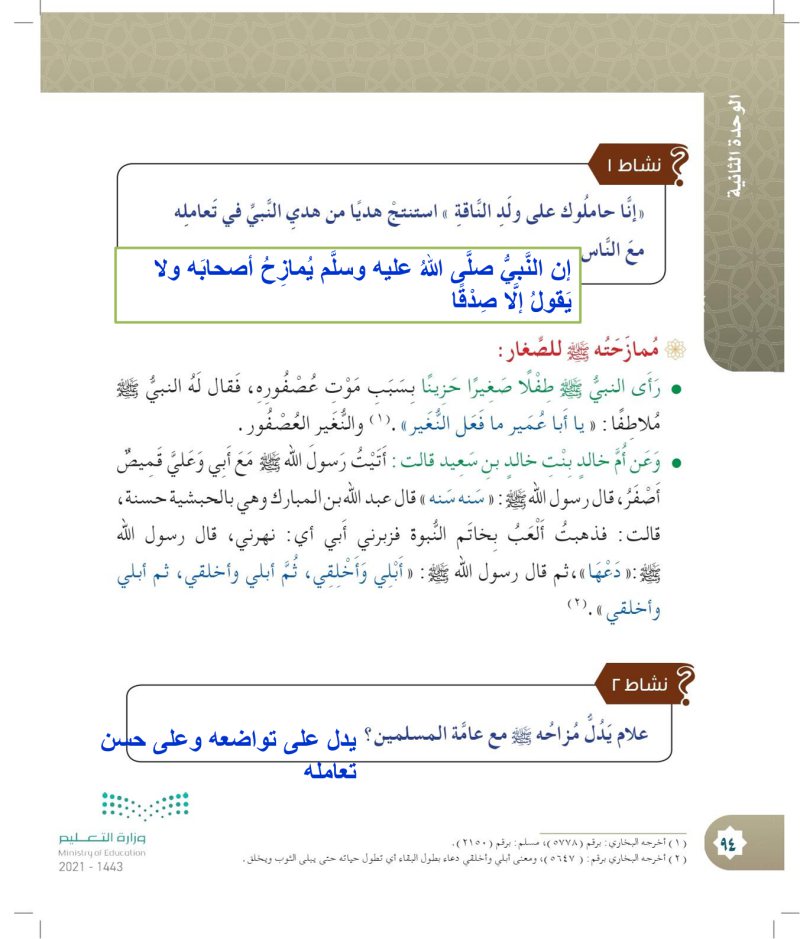 الوحدة الثانية
نشاط ١
«إنَّا حاملُوك على ولَدِ النَّاقةِ » استنتجْ هديًا من هديِ النَّبيِّ في تَعاملِه
معَ النَّاس
إن النَّبيُّ صلَّى اللهُ عليه وسلَّم يُمازِحُ أصحابَه ولا
يَقولُ إلَّا صِدْقًا
مُمازَحَتُه ﷺ للصَّغار:
رَأَى النبيُّ ﷺ طِفْلًا صَغِيرًا حَزِينًا بِسَبَبِ مَوْتِ عُصْفُورِهِ، فَقال لَهُ النبيُّ ﷺ
مُلاطِفًا: « يا أبا عُمَير ما فَعَل النُّغَير» .(١) والنُّغَير العُصْفُور.
وَعَن أُمَّ خالدٍ بِنْتِ خالدٍ بنِ سَعِيد قالت: أَتَيْتُ رَسولَ الله ﷺ مَعَ أَبي وَعَليَّ قَمِيصٌ
أَصْفَرُ، قال رسول الله ﷺ: « سَنه سَنه » قال عبد الله بن المبارك وهي بالحبشية حسنة،
قالت: فذهبتُ أَلْعَبُ بِخاتَم النُّبوة فزبرني أَبي أي: نهرني، قال رسول الله
ﷺ:« دَعْهَا»، ثم قال رسول الله ﷺ: « أَبْلِي وَأَخْلِقِي، ثُمَّ أبلي وأخلقي، ثم أبلي
وأخلقي» .(٢)
نشاط ٢
علام يَدُلُّ مُزاحُه ﷺ مع عامَّة المسلمين؟ يدل على تواضعه وعلى حسن
تعامله
وزارة التعـليم
Ministry of Education
2021 - 1443
(١) أخرجه البخاري: برقم (٥٧٧٨)، مسلم: برقم (٢١٥٠).
(٢) أخرجه البخاري برقم: (٥٦٤٧)، ومعنى أبلي وأخلقي دعاء بطول البقاء أي تطول حياته حتى يبلى الثوب ويخلق.
٩٤